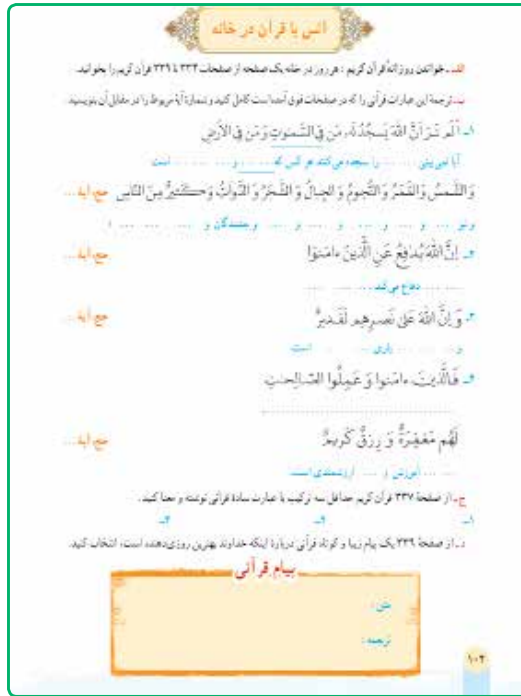 انس با قرآن در خانه
الف ـ خواندن روزانهٔ قرآن کریم : هر روز در خانه یک صفحه از صفحات ۳۳۴ تا ۳۳۹ قرآن کریم را بخوانید.
ب ـ ترجمهٔ این عبارات قرآنی را که در صفحات فوق آمده است کامل کنید و شمارهٔ آیهٔ مربوط را در مقابل آن بنویسید.
۱ـ أَلَم تَرَ أَنَّ اللّٰهَ يَسجُدُ لَهُ مَن فِي السَّمٰوٰتِ وَ مَن فِي الأَرضِ
آیا نمی بینی ...... را سجده می کنند هر کس که ...... و ...... است
وَ الشَّمسُ وَ القَمَرُ وَ النُّجومُ وَ الجِبالُ وَ الشَّجَرُ وَ الدَّوابُّ وَ كَثيرٌ مِنَ النّاسِ حج، آیهٔ ...
و نیز ... و ... و ... و ... و ... و جنبندگان و ... ... ... ؛
۲ـ إِنَّ اللّٰهَ يُدافِعُ عَنِ الَّذينَ ءامَنوا حج، آیهٔ ...
...... دفاع می کند ......
۳ـ وَ إِنَّ اللّٰهَ عَلىٰ نَصرِهِم لَقَديرٌ حج، آیهٔ ...
و ...... یاری ...... است.
۴ـ فَالَّذينَ ءامَنوا وَ عَمِلُوا الصّالِحٰتِ
لَهُم مَغفِرَةٌ وَ رِزقٌ كَريمٌ حج، آیهٔ ...
...... آمرزش و ... ارزشمندی است.
ج ـ از صفحهٔ ۳۳۷ قرآن کریم حداقل سه ترکیب یا عبارت سادهٔ قرآنی نوشته و معنا کنید.
۱ـ ۲ـ ۳ـ
د ـ از صفحهٔ ۳۳۹ یک پیام زیبا و کوتاه قرآنی دربارهٔ اینکه خداوند بهترین روزی دهنده است، انتخاب کنید.
پیام قرآنی
متن :
ترجمه :
۱۰۲